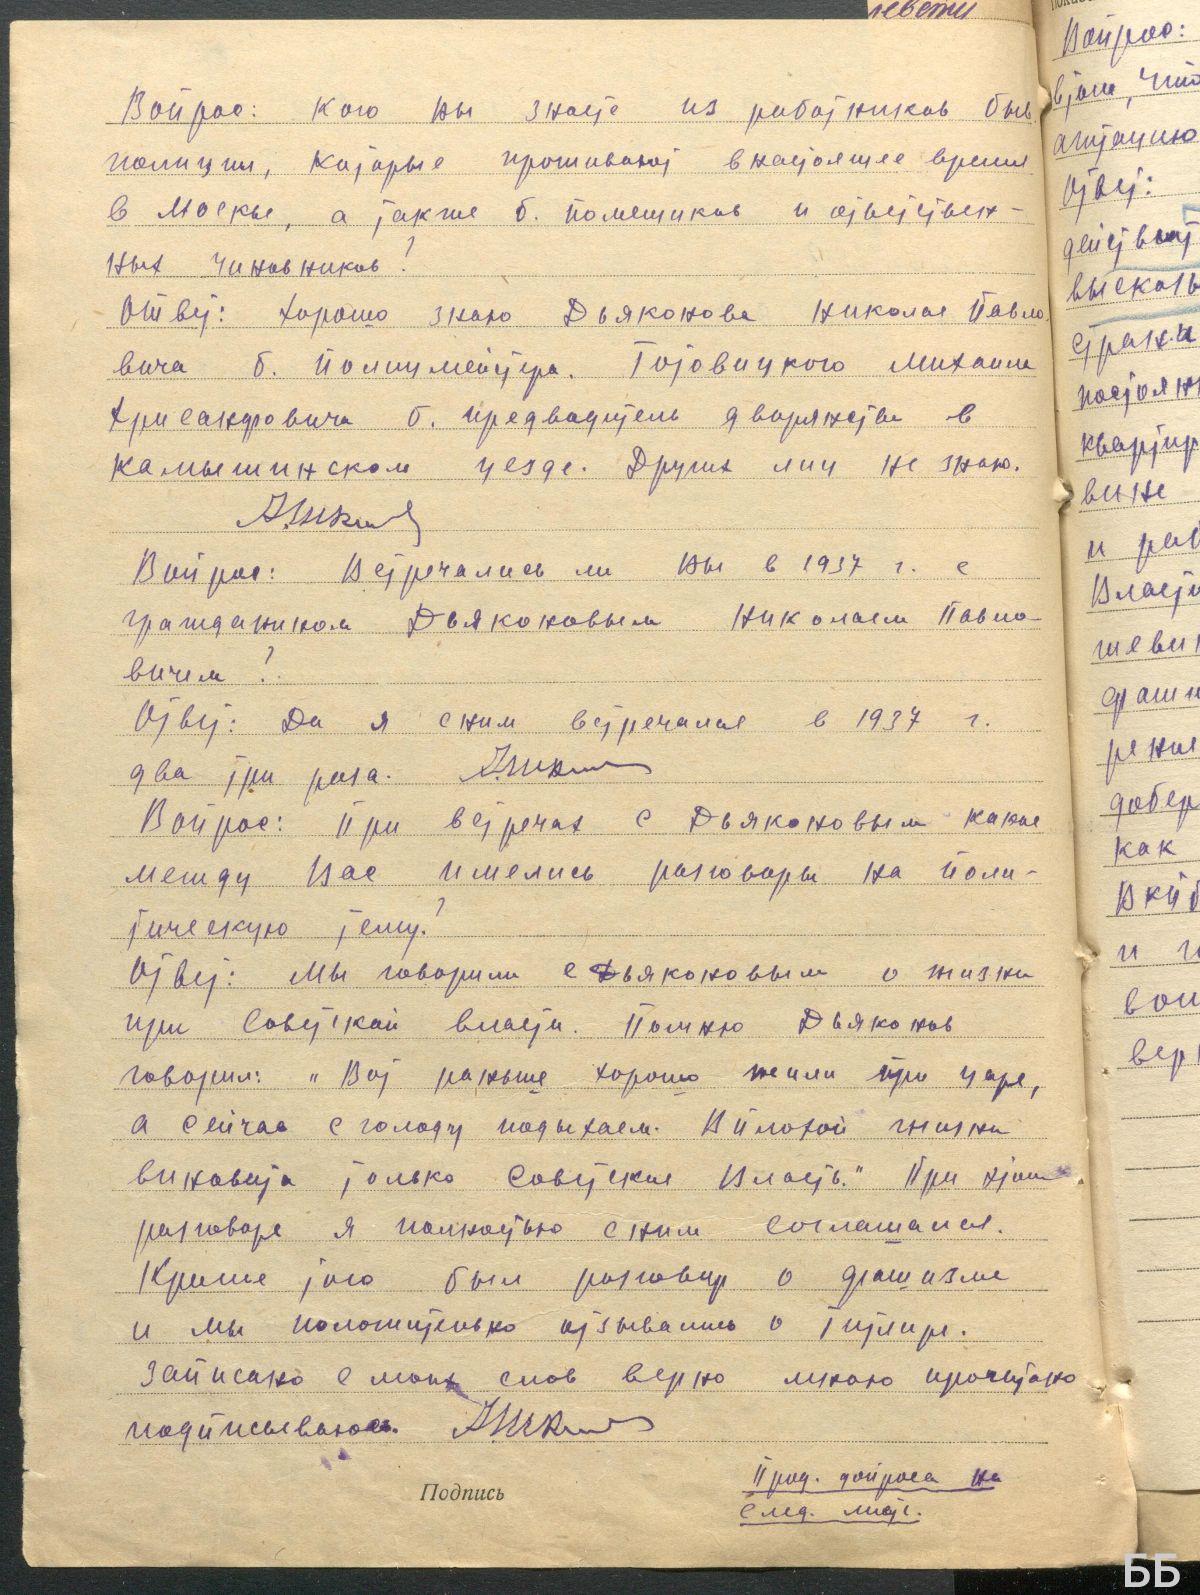 левети
Вопрос: Кого Вы знаете из работников быв.
полиции, которые проживают в настоящее время
в Москве, а также б. помещиков и ответствен-
ных чиновников?
Ответ: Хорошо знаю Дьяконова Николая Павло-
вича б. полицмейстера. Готовицкого Михаила
Хрисанфовича б. предводитель дворянства в
Камышинском уезде. Других лиц не знаю.
Вопрос: Встречались ли Вы в 1937 г. с
гражданином Дьяконовым Николаем Павло-
вичем?
Ответ: Да я с ним встречался в 1937 г.
два три раза.
Вопрос: При встречах с Дьяконовым какие
между Вас имелись разговоры на поли-
тическую тему?
Ответ: Мы говорили с Дьяконовым о жизни
при Советской власти. Помню Дьяконов
говорил: „Вот раньше хорошо жили при царе,
а сейчас с голоду подыхаем. В плохой жизни
виновата только Советская Власть." При этом
разговоре я полностью с ним соглашался.
Кроме того был разговор о фашизме
и мы положительно отзывались о Гитлере.
Записано с моих слов верно мною прочитано
подписываюсь.
Подпись
Прод. допроса на
след. листе.
Вопрос:
этом, что
агитацию
Ответ:
действит
высказы
страны
постоянн
квартир
вине
и раб
Власти
шевик
фаши
рения
добер
как
ВКПб
и г
вой
вер
ББ